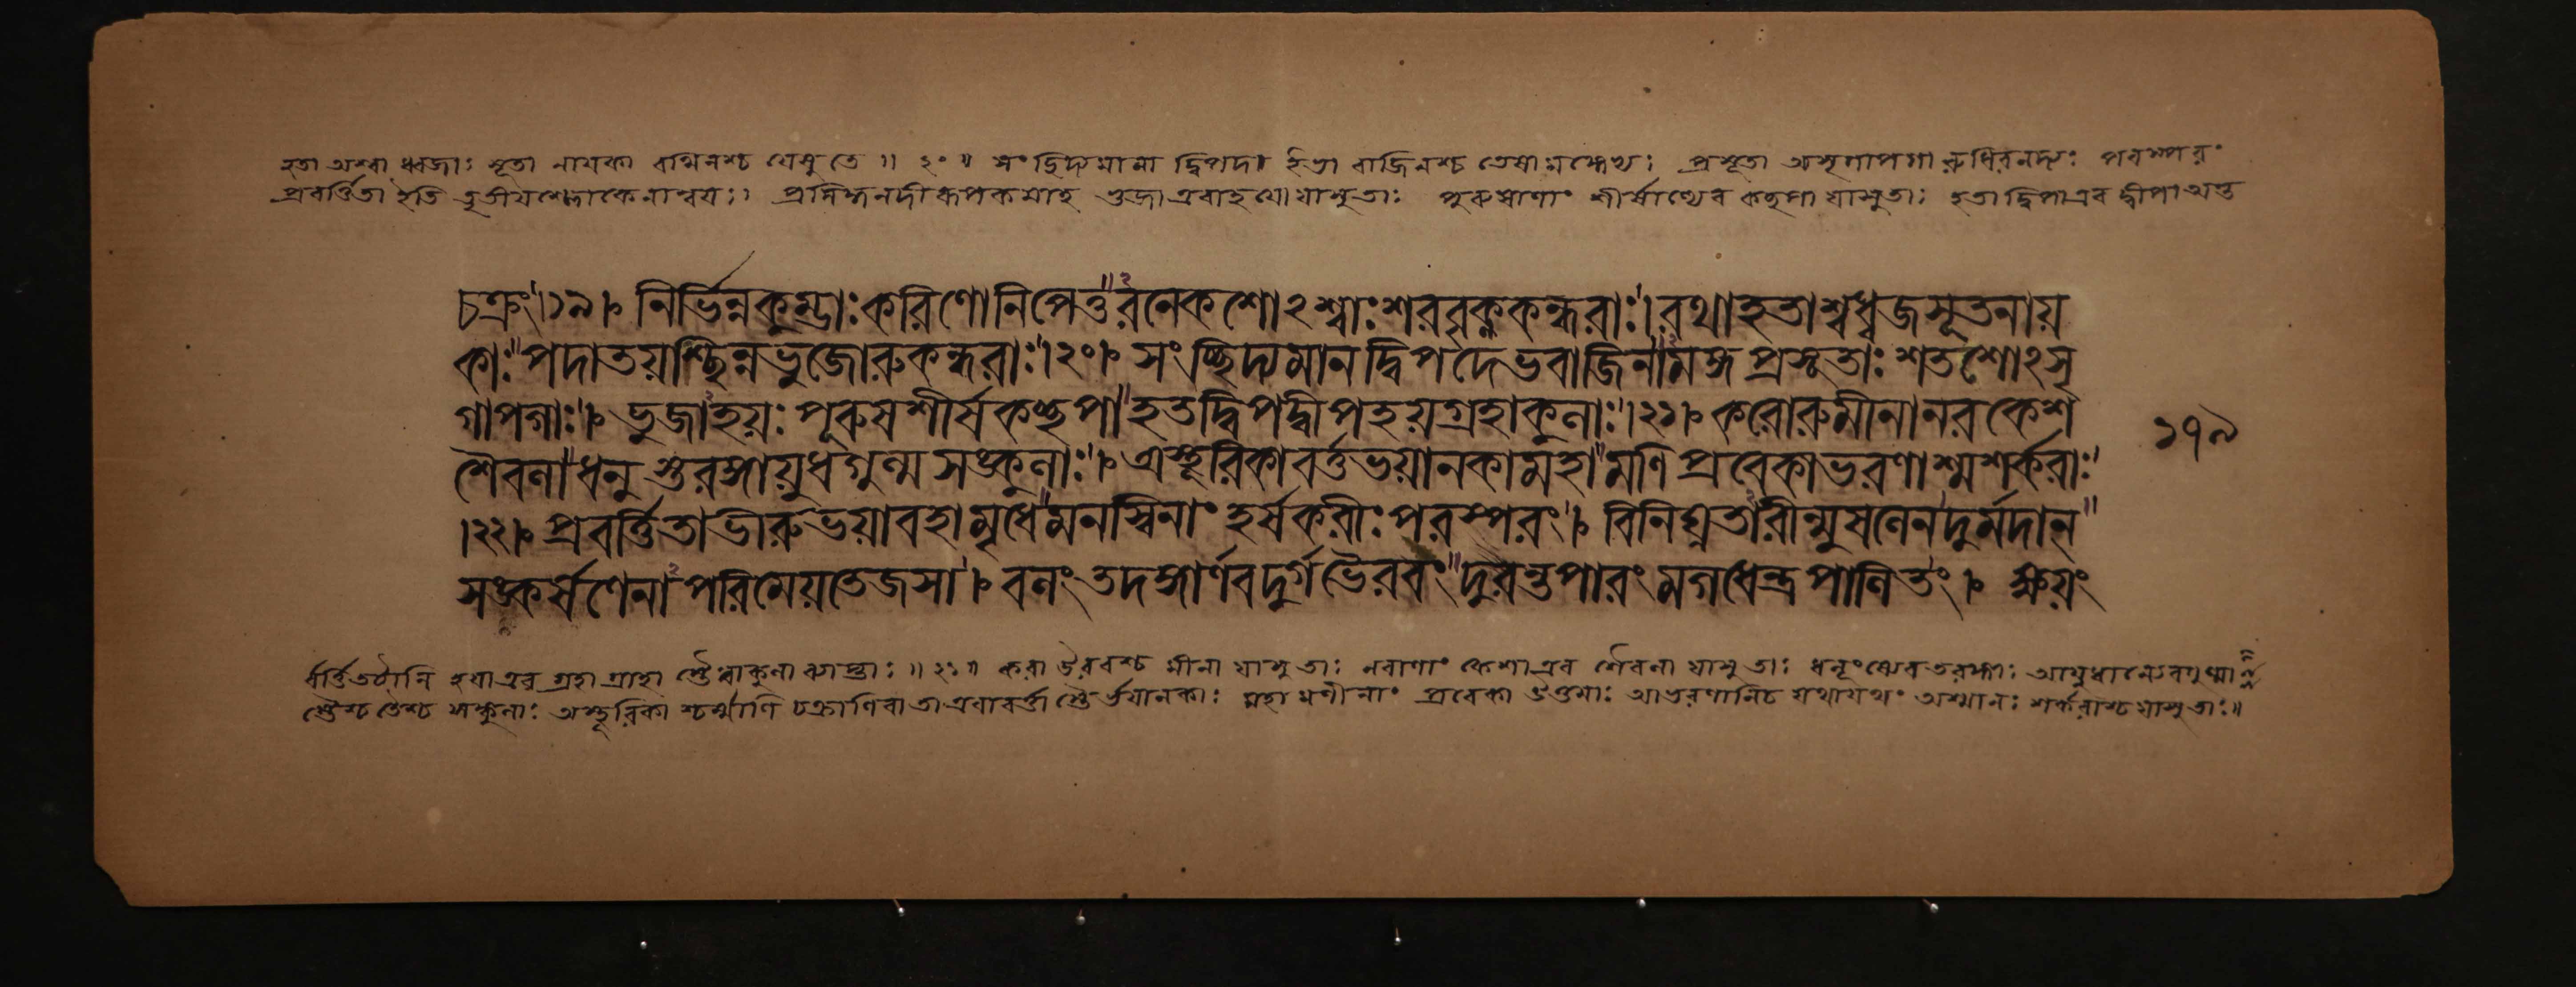 হতা অশ্বা ধ্বজাঃ সূতা নায়কা রথিনশ্চ যেষু তে ॥ ২০ ॥ সংছিদ্যমানা দ্বিপদা ইভা বাজিনশ্চ তেষামঙ্গেভ্যঃ প্রসূতা অসৃগাপগা রুধিরনদ্যঃ পরস্পরং
প্রবর্ত্তিতা ইতি তৃতীয়শ্লোকেনান্বয়ঃ। প্রসিদ্ধনদীরূপকমাহ ভুজা এবাহয়ো যাসু তাঃ পুরুষাণাং শীর্ষাণ্যেব কচ্ছপা যাসু তাঃ হতা দ্বিপা এব দ্বীপা অন্ত
চক্রং ।১৯। নির্ভিন্নকুম্ভাঃ করিণো নিপেতুরনেকশোঽশ্বাঃ শরবৃক্ণকন্ধরাঃ। রথা হতাশ্বধ্বজসূতনায়
কাঃ পদাতয়শ্ছিন্নভুজোরুকন্ধরাঃ ।২০। সংচ্ছিদ্যমানদ্বিপদেভবাজিনামঙ্গপ্রসূতাঃ শতশোঽসৃ
গাপগাঃ। ভুজাহয়ঃ পূরুষশীর্ষকচ্ছপা হতদ্বিপদ্বীপহয়গ্রহাকুলাঃ ।২১। করোরুমীনা নরকেশ
শৈবলা ধনুস্তরঙ্গায়ুধগুল্মসঙ্কুলাঃ। অচ্ছূরিকাবর্ত্তভয়ানকা মহামণিপ্রবেকাভরণাশ্মশর্করাঃ
১৭৯
।২২। প্রবর্ত্তিতা ভীরুভয়াবহা মৃধে মনস্বিনাং হর্ষকরীঃ পরস্পরং। বিনিঘ্নতারীন্মুষলেন দুর্মদান্
সঙ্কর্ষণেনাপরিমেয়তেজসা। বলং তদঙ্গার্ণবদুর্গভৈরবং দুরন্তপারং মগধেন্দ্রপালিতং। ক্ষয়ং
হয়া এব গ্রহা গ্রাহা স্তৈরাকুলা ব্যাপ্তাঃ ॥ ২১ ॥ করা ঊরবশ্চ মীনা যাসু তাঃ নরাণাং কেশা এব শৈবলা যাসু তাঃ ধনূংষ্যেব তরঙ্গাঃ আয়ুধান্যেব গুল্মা
স্তৈশ্চ তৈশ্চ সঙ্কুলাঃ অচ্ছূরিকা শ্চর্মাণি চক্রাণি বা তা এবাবর্ত্তা স্তৈর্ভয়ানকাঃ মহামণীনাং প্রবেকা উত্তমাঃ আভরণানি চ যথাযথং অশ্মানঃ শর্করাশ্চ যাসু তাঃ ॥